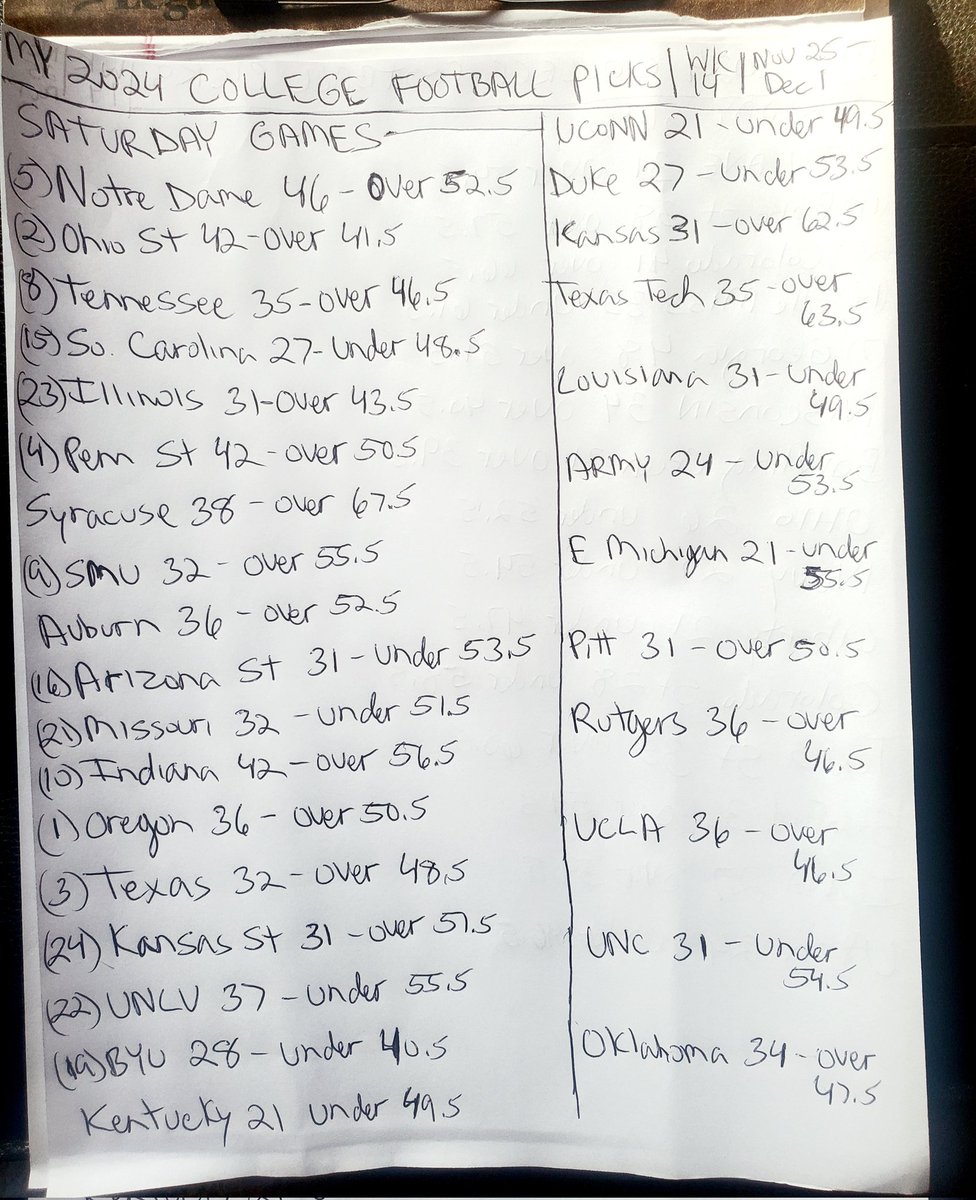 MY 2024 COLLEGE FOOTBALL PICKS | WK 14 | Nov 25 - Dec 1
SATURDAY GAMES
(5) Notre Dame 46 - Over 52.5
(2) Ohio St 42 - over 41.5
(8) Tennessee 35 - over 46.5
(15) So. Carolina 27 - Under 48.5
(23) Illinois 31 - Over 43.5
(4) Penn St 42 - over 50.5
Syracuse 38 - over 67.5
(9) SMU 32 - over 55.5
Auburn 36 - over 52.5
(16) Arizona St 31 - under 53.5
(21) Missouri 32 - under 51.5
(10) Indiana 42 - over 56.5
(1) Oregon 36 - over 50.5
(3) Texas 32 - over 48.5
(24) Kansas St 31 - over 51.5
(22) UNLV 37 - under 55.5
(19) BYU 28 - under 40.5
Kentucky 21 under 49.5
UCONN 21 - under 49.5
Duke 27 - under 53.5
Kansas 31 - over 62.5
Texas Tech 35 - over
63.5
Louisiana 31 - under
49.5
ARMY 24 - under
53.5
E Michigan 21 - under
55.5
Pitt 31 - over 50.5
Rutgers 36 - over
46.5
UCLA 36 - over
46.5
UNC 31 - under
54.5
Oklahoma 34 - over
47.5